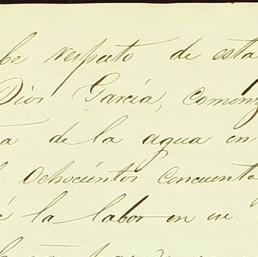 be respecto de esta
Dios García, comenz
a de la agua en
ochocientos cincuenta
é la labor en un